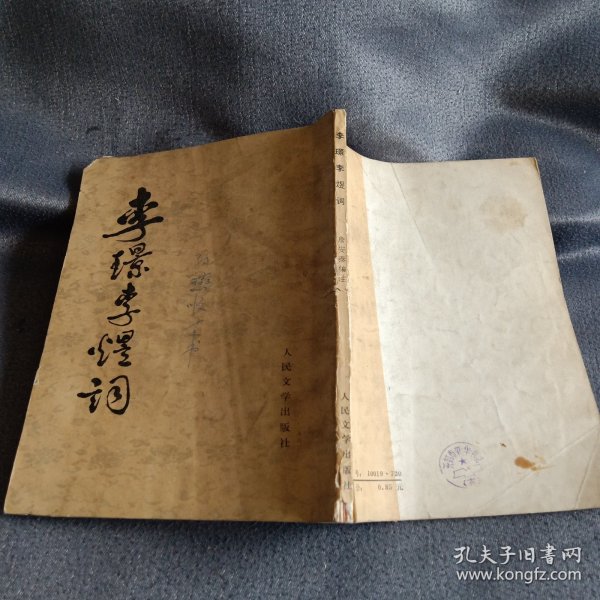 李璟李煜词
人民文学出版社
李璟李煜词
詹安泰编注
人民文学出版社
号:10019·720
0.85元
孔夫子旧书网
www.kongfz.com